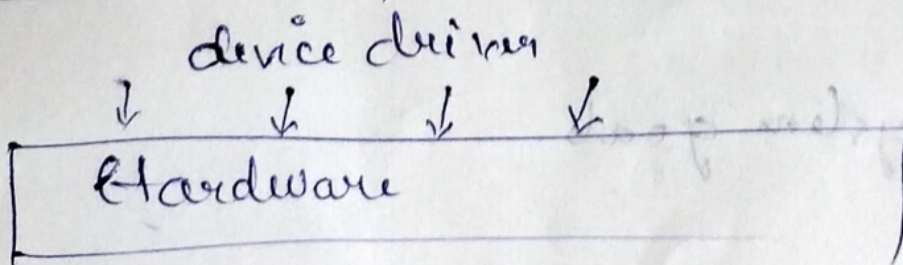 device driver
Hardware